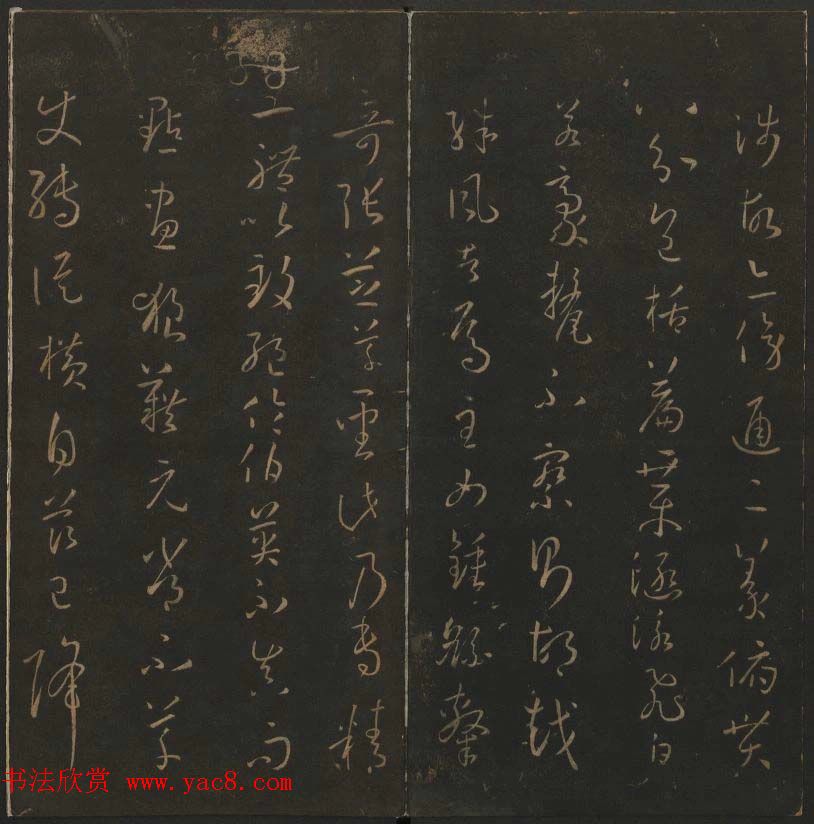 涉故亦傍通二篆俯貫
八分包括篇章涵泳飛白
若豪氂不察則胡越
殊風者焉至如鍾繇隸
奇張芝草聖此乃專精
一體以致絕倫伯英不真而
點畫狼藉元常不草
使轉從橫自茲已降
书法欣赏 www.yac8.com